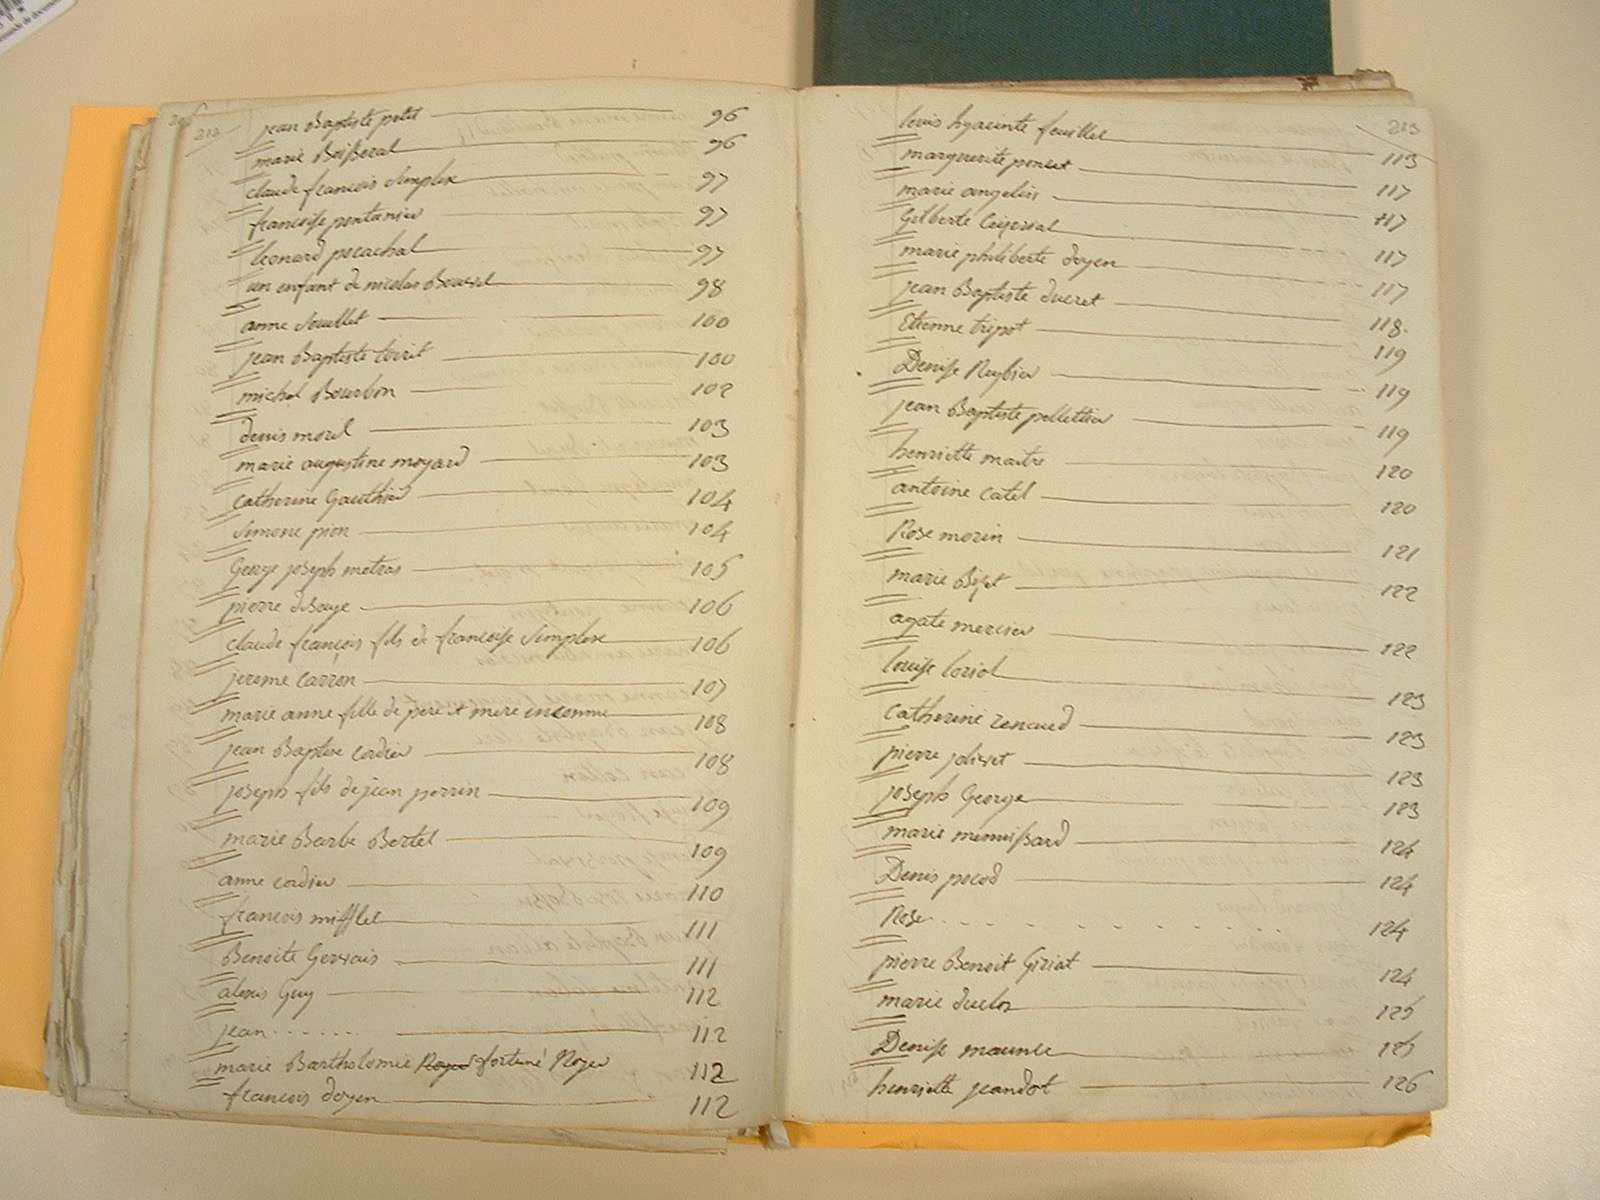 212
jean Baptiste petit 96
marie 96
claude françois Simplex 97
françoise pontanier 97
leonard pocachal 97
un enfant de nicolas 98
anne 100
jean Baptiste loirit 100
michel Bourbon 102
denis morel 103
marie augustine moyard 103
catherine Gauthier 104
Simone pion 104
George joseph metras 105
pierre deBaye 106
claude françois fils de françoise Simplex 106
jerome Carron 107
marie anne fille de pere et mere inconnue 108
jean Baptiste cordier 108
joseph fils de jean perrin 109
marie Barbe Bertel 109
anne cordier 110
françois mifflet 111
Benoite Gervais 111
alexis Guy 112
jean 112
marie Bartholomie fortuné Royer 112
françois doyen 112
213
louis hyacinte feuillet 113
marguerite poncet 117
marie angelin 117
Gilberte 117
marie philiberte doyen 117
jean Baptiste ducret 118
Etienne tripot 119
Denise Reybier 119
jean Baptiste pellettier 119
henriette maitre 120
antoine catel 120
Rose morin 121
marie Bizet 122
agate mercier 122
louise loriol 123
catherine renaud 123
pierre jolivet 123
joseph George 123
marie 124
Denis pocod 124
Rose 124
pierre Benoit Giriat 124
marie duclos 125
Denise 125
henriette jeandot 126